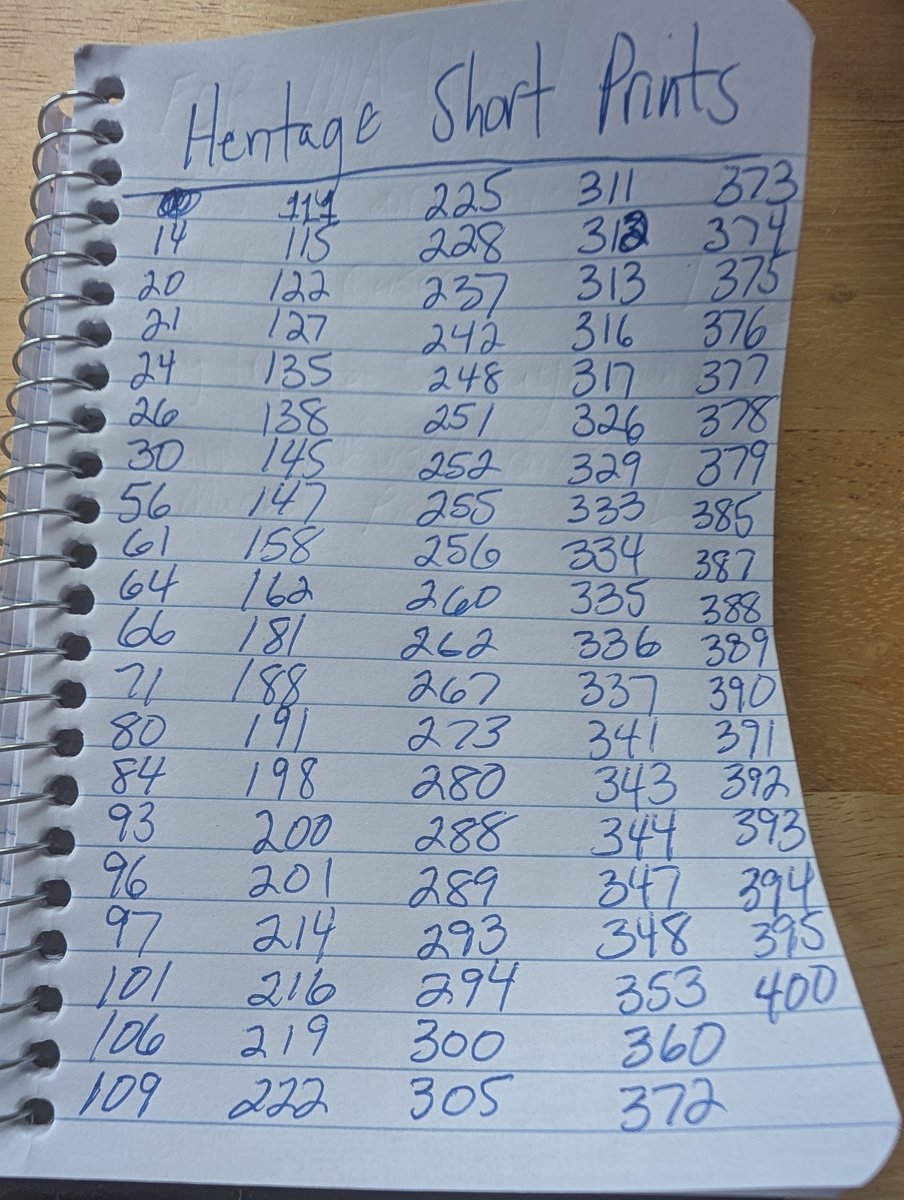 Heritage Short Prints
111 225 311 373
14 115 228 312 374
20 122 237 313 375
21 127 242 316 376
24 135 248 317 377
26 138 251 326 378
30 145 252 329 379
56 147 255 333 385
61 158 256 334 387
64 162 260 335 388
66 181 262 336 389
71 188 267 337 390
80 191 273 341 391
84 198 280 343 392
93 200 288 344 393
96 201 289 347 394
97 214 293 348 395
101 216 294 353 400
106 219 300 360
109 222 305 372